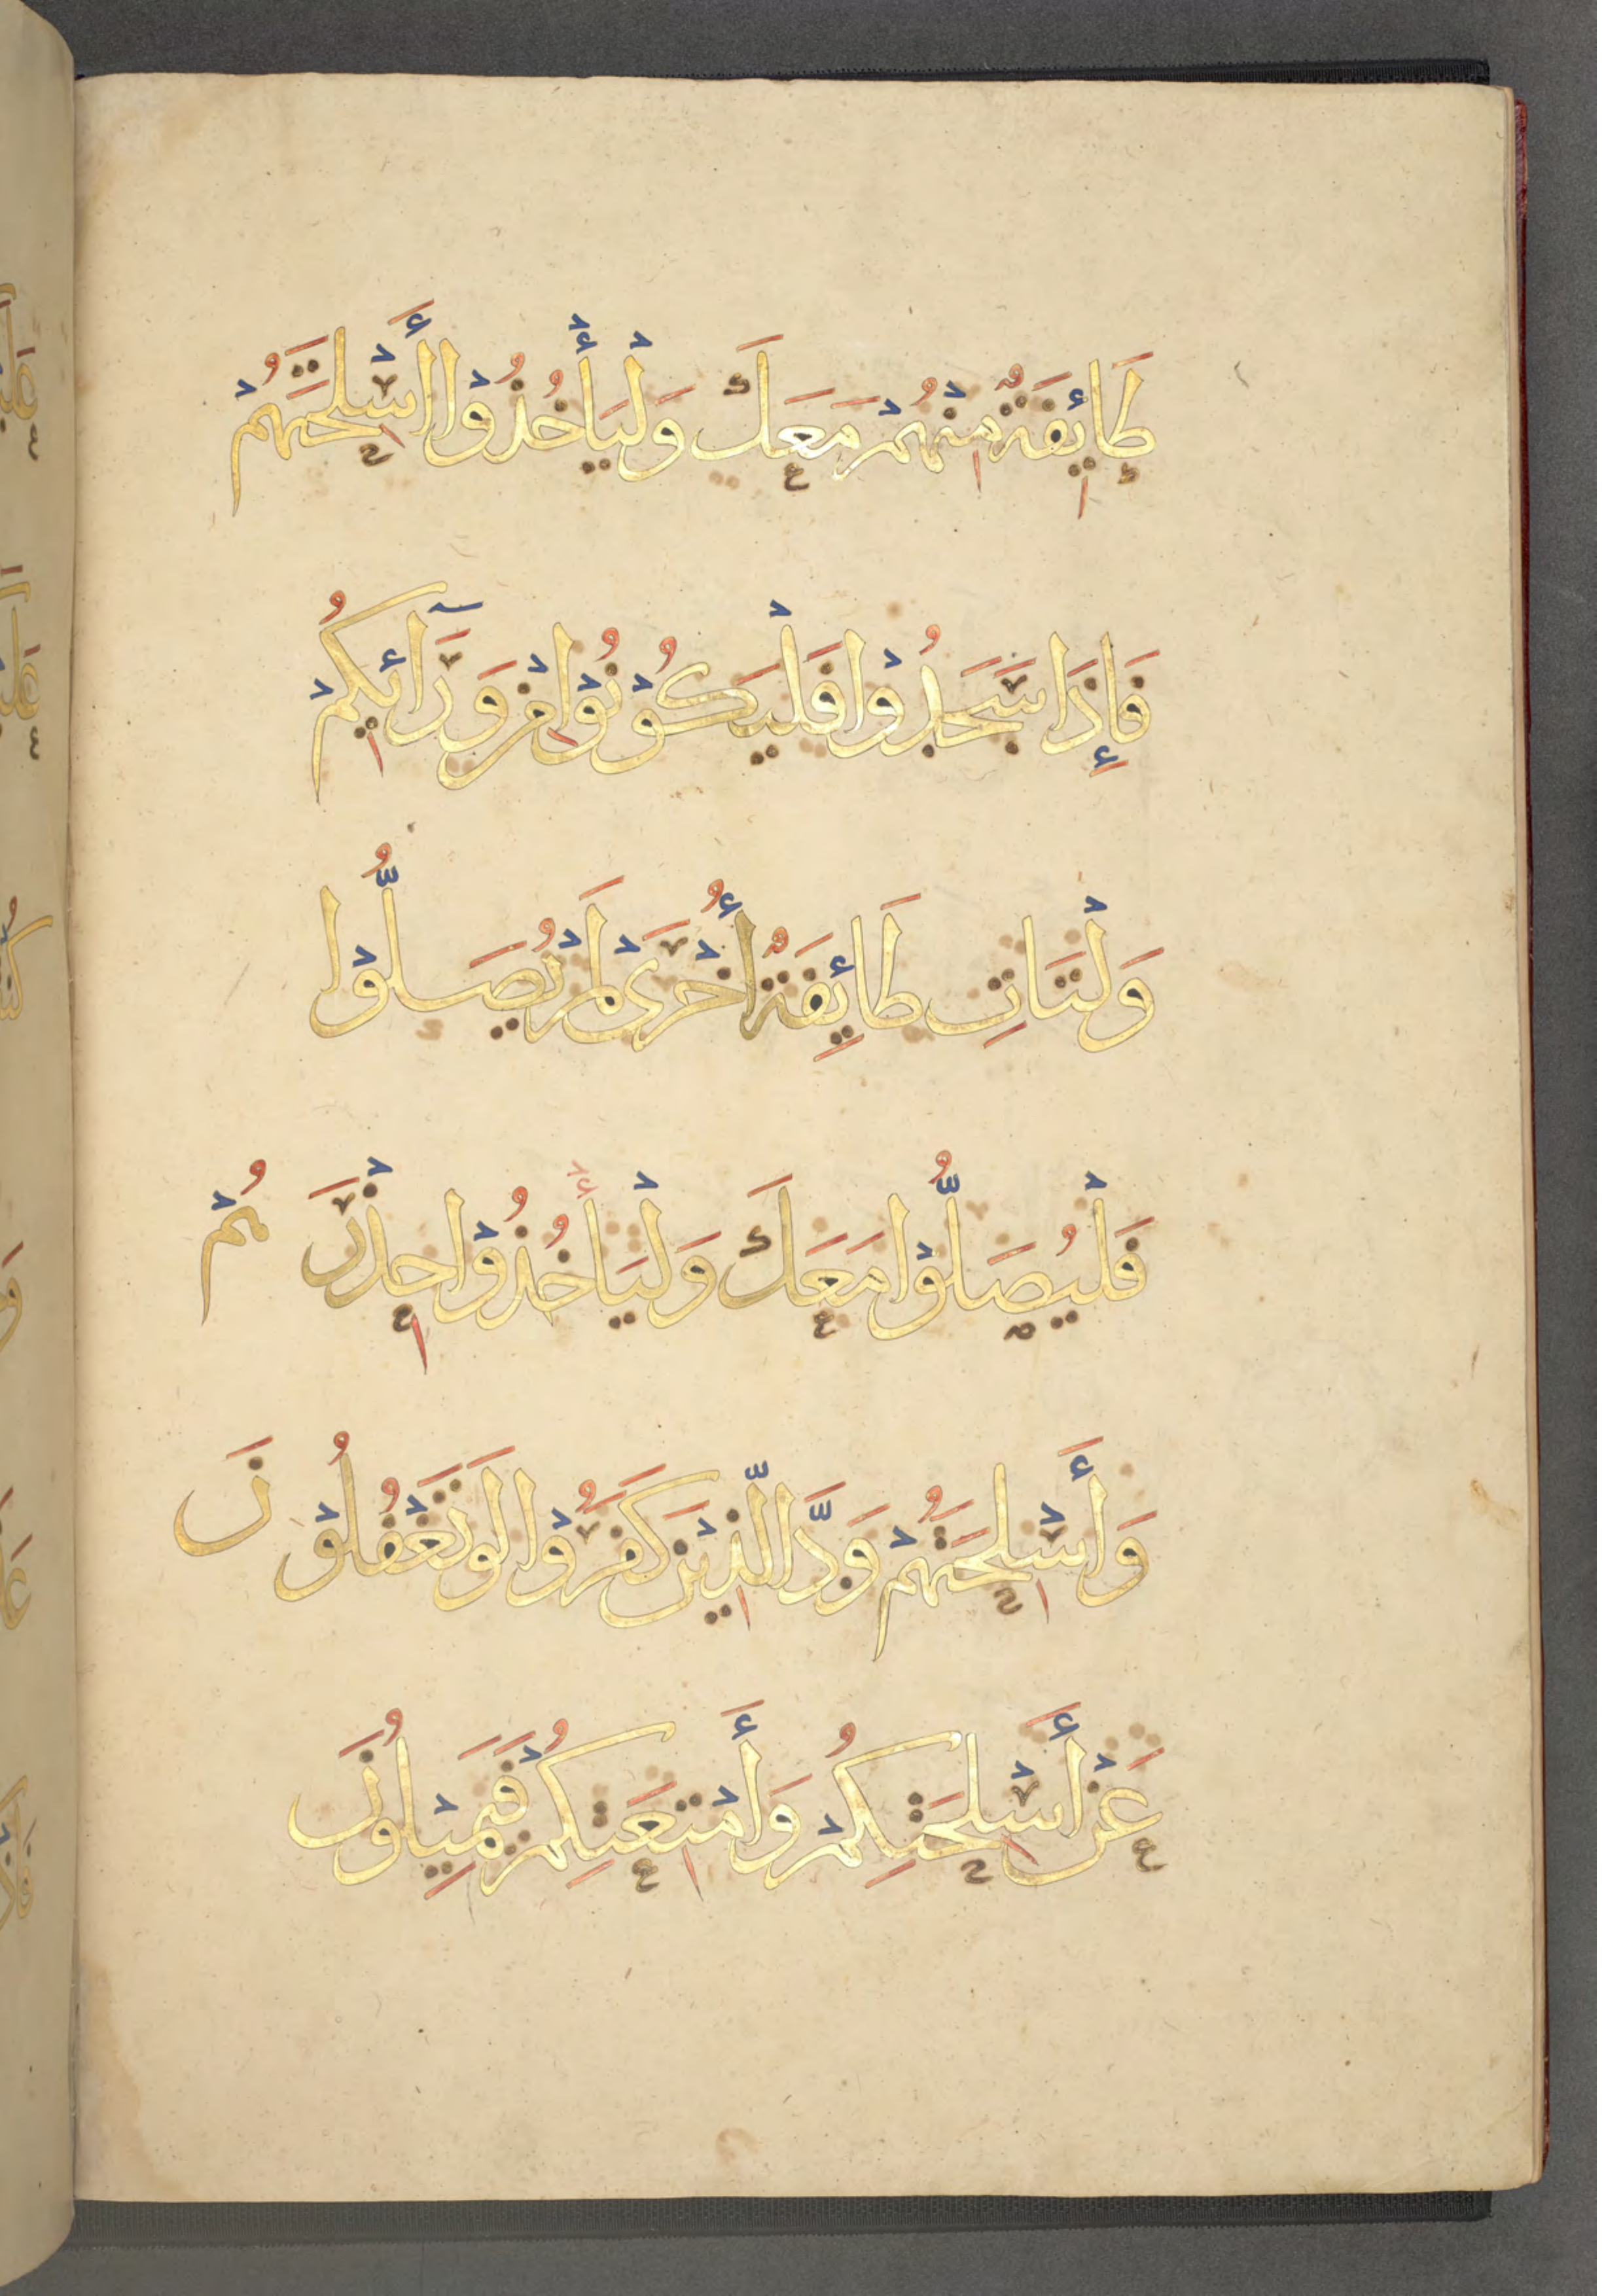 طَائِفَةٌ مِنْهُمْ مَعَكَ وَلْيَأْخُذُوْا أَسْلِحَتَهُمْ
فَإِذَا سَجَدُوْا فَلْيَكُوْنُوْا مِنْ وَرَآئِكُمْ
وَلْتَاتِ طَائِفَةٌ أُخْرَىْ لَمْ يُصَلُّوْا
فَلْيُصَلُّوْا مَعَكَ وَلْيَأْخُذُوْا حِذْرَهُمْ
وَأَسْلِحَتَهُمْ وَدَّ الَّذِيْنَ كَفَرُوْا لَوْ تَغْفُلُوْنَ
عَنْ أَسْلِحَتِكُمْ وَأَمْتِعَتِكُمْ فَيَمِيْلُوْنَ